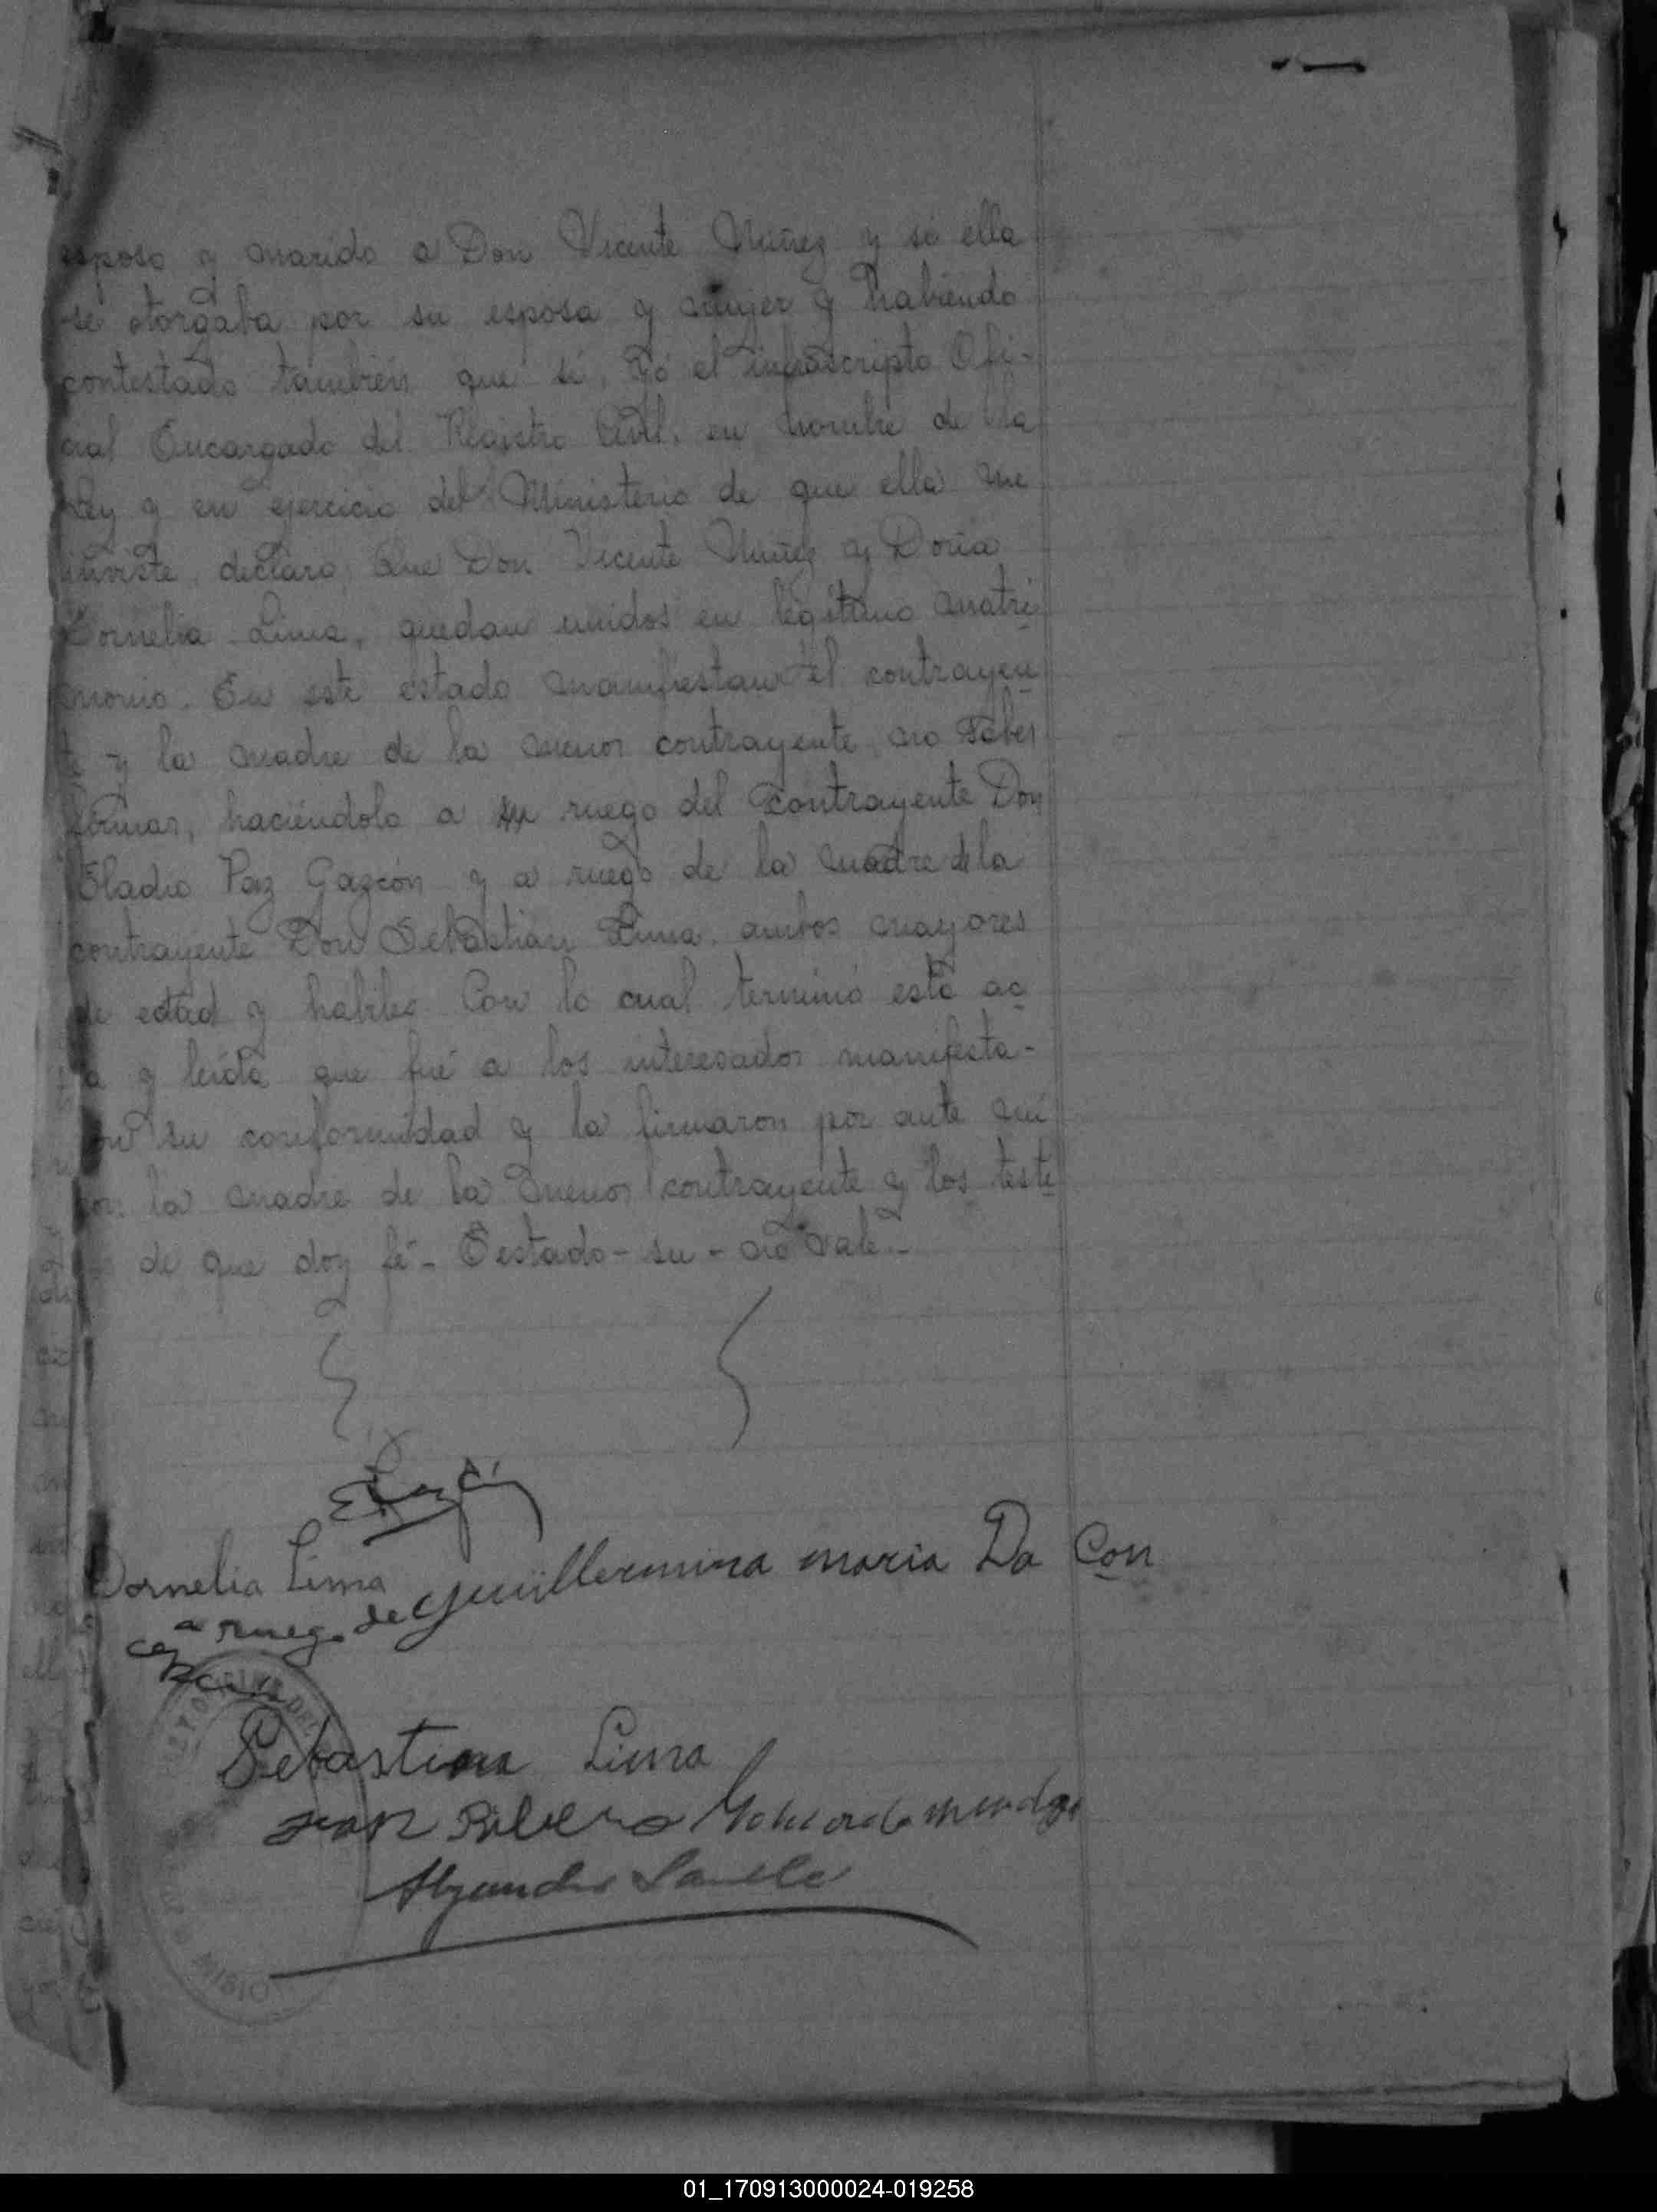 esposo y marido a Don Vicente Núñez y si ella
se otorgaba por su esposa y mujer y habiendo
contestado también que sí, Yo el infrascripto Ofi-
cial Encargado del Registro Civil, en nombre de la
Ley y en ejercicio del Ministerio de que ella me
inviste, declaro, Que Don Vicente Núñez y Doña
Dornelia Lima, quedan unidos en legítimo matri
monio. En este estado manifiestan el contrayen
te y la madre de la menor contrayente no saber
firmar, haciéndolo a su ruego del contrayente Don
Eladio Paz Gazcón y a ruego de la madre de la
contrayente Don Sebastian Lima, ambos mayores
de edad y habiles Con lo cual terminó esta ac
ta y leída que fué a los interesados manifesta-
ron su conformidad y la firmaron por ante mi
con la madre de la menor contrayente y los testi
de que doy fé - Testado - su - no vale -
Dornelia Lima
a ruego de Guillermina maria Da Con
cepcion
Sebastian Lima
Juan Mendoza
Alejandro
01_170913000024-019258